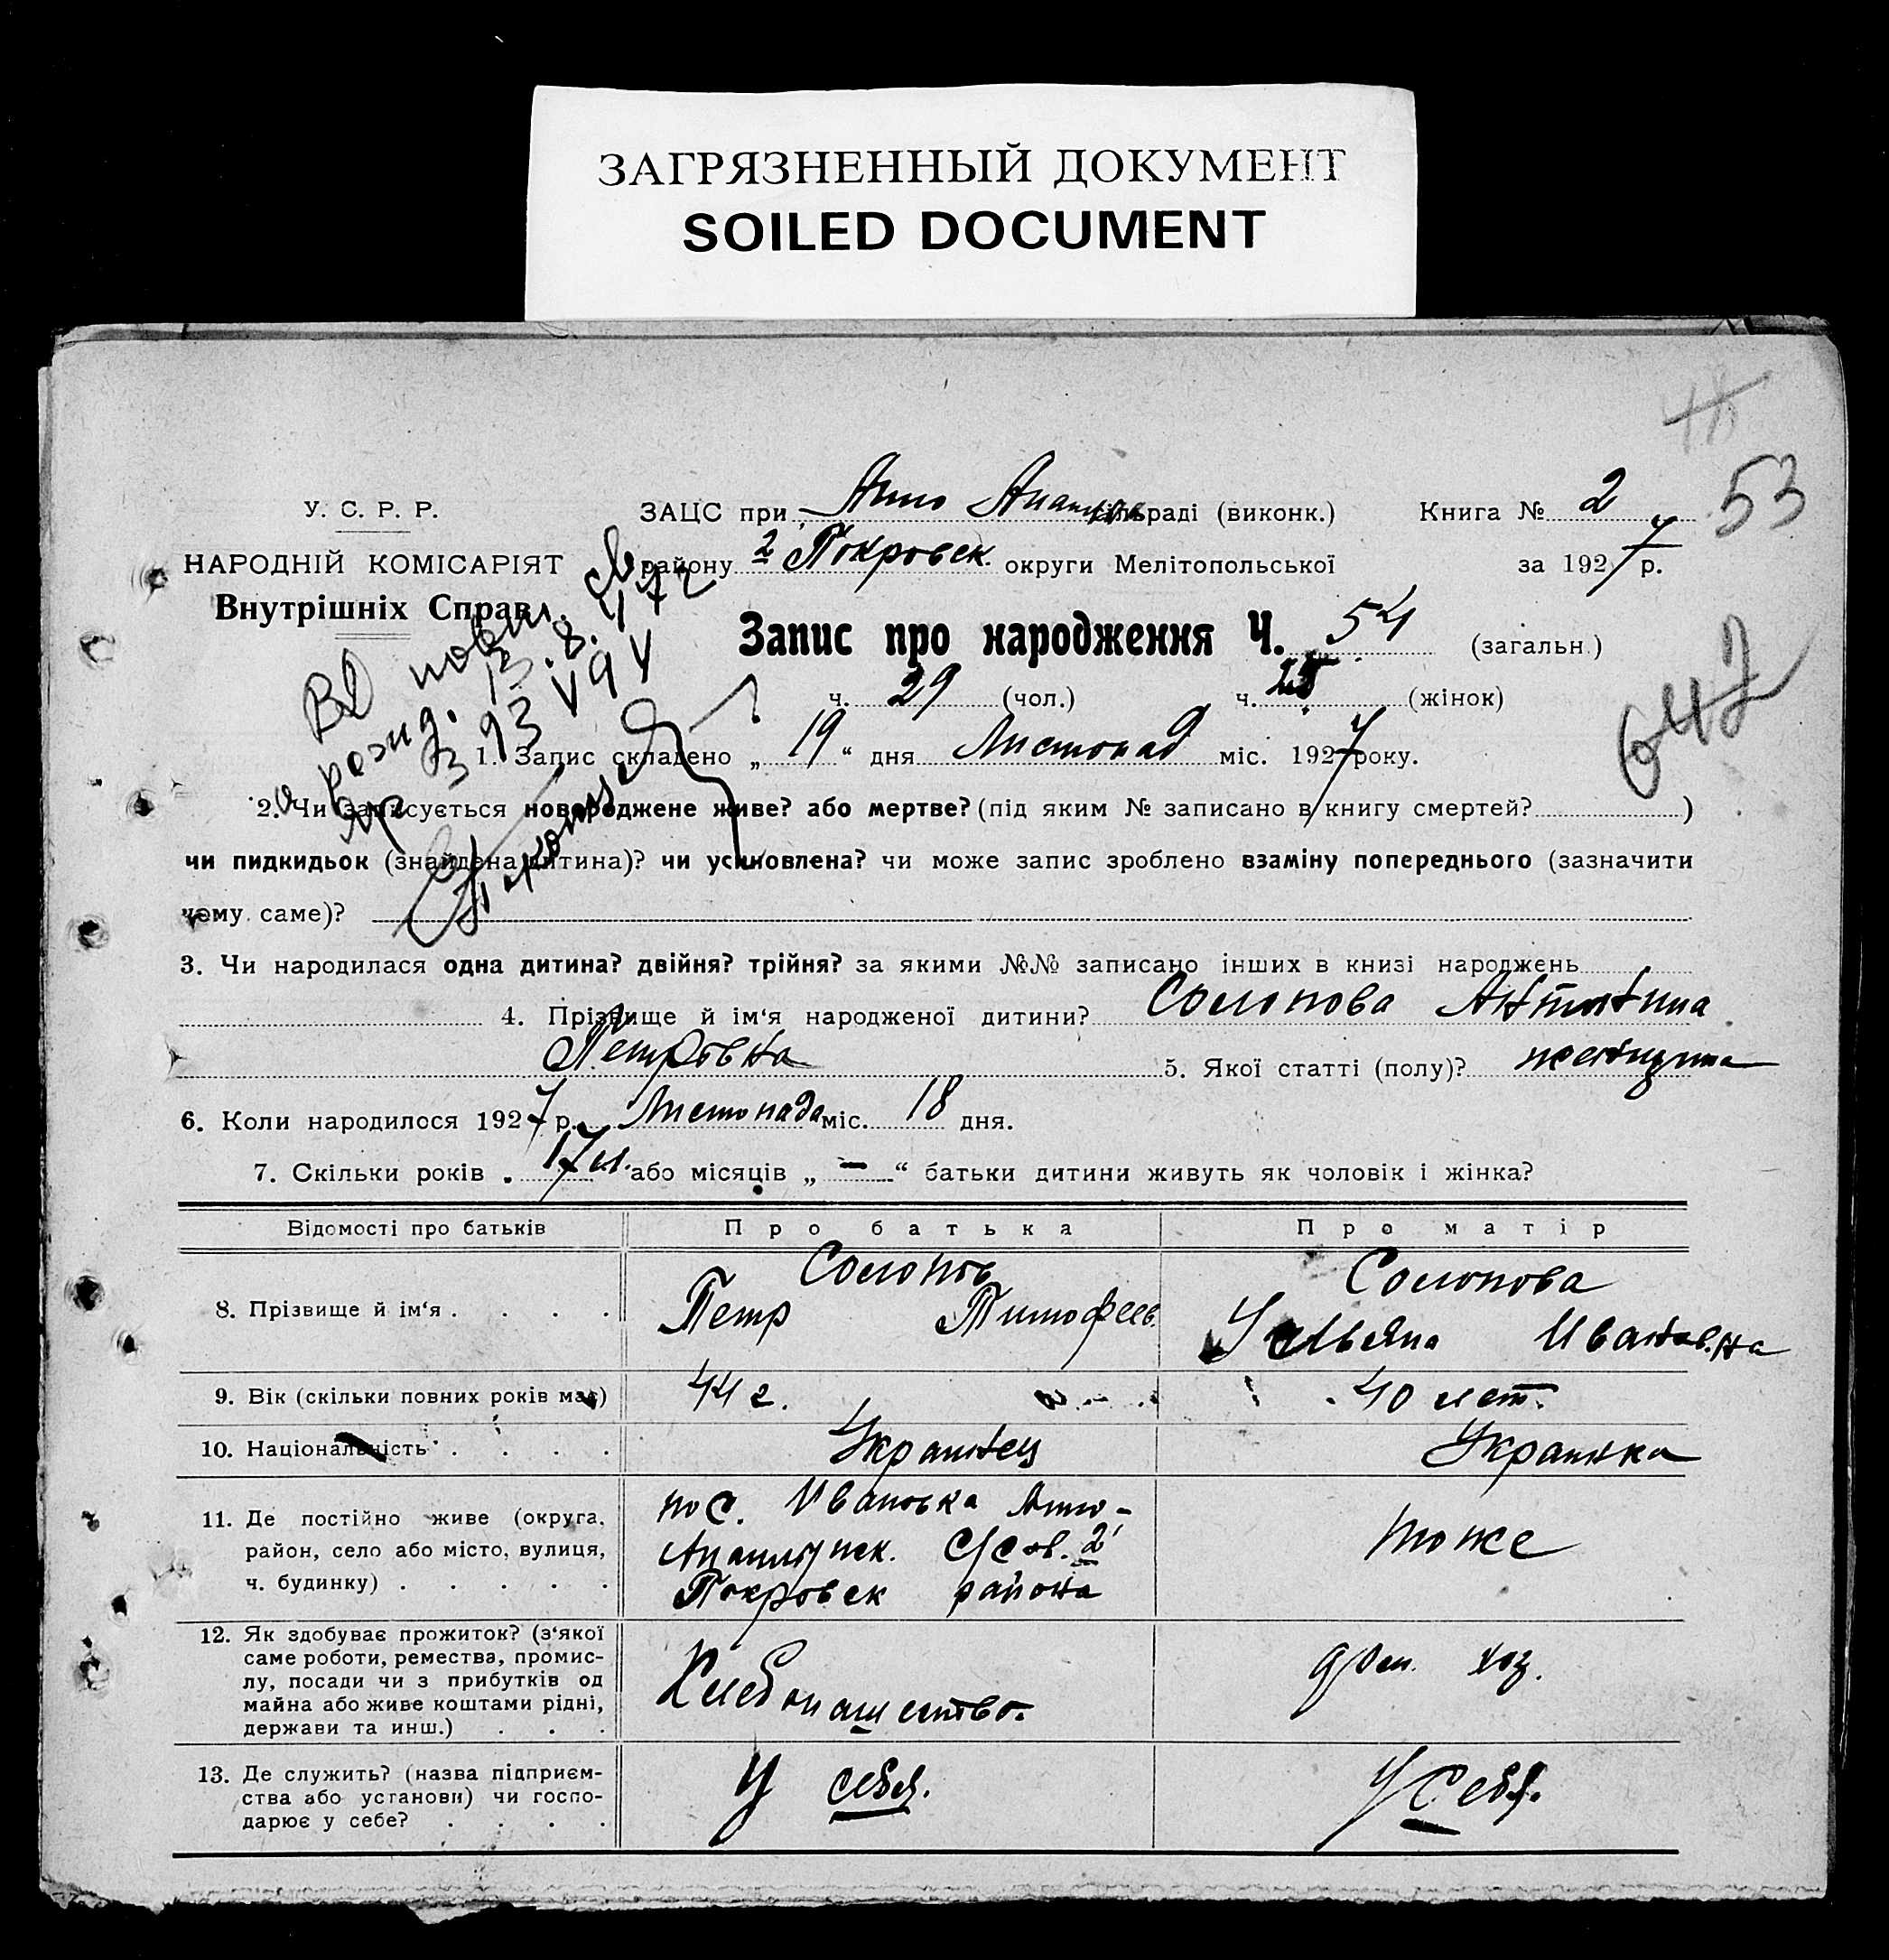 ЗАГРЯЗНЕННЫЙ ДОКУМЕНТ
SOILED DOCUMENT
53
У. С. Р. Р.
НАРОДНІЙ КОМІСАРІЯТ
Внутрішніх Справ
ЗАЦС при Анно сільраді (виконк.) Книга № 2
району 2 Покровск. округи Мелітопольської за 1927 р.
Запис про народження Ч. 54 (загальн.)
ч. 29 (чол.) ч. 25 (жінок)
647
1. Запис складено „19“ дня Листопад міс. 1927 року.
2. Чи записується новороджене живе? або мертве? (під яким № записано в книгу смертей? )
чи пидкидьок (знайдена дитина)? чи усиновлена? чи може запис зроблено взаміну попереднього (зазначити
чому саме)?
3. Чи народилася одна дитина? двійня? трійня? за якими №№ записано інших в книзі народжень
4. Прізвище й ім‘я народженої дитини? Солопова Антонина
Петровна 5. Якої статті (полу)? женщина
6. Коли народилося 1927 р. Листопада міс. 18 дня.
7. Скільки років „17 л. або місяців „ — “ батьки дитини живуть як чоловік і жінка?
Відомості про батьків Про батька Про матір
8. Прізвище й ім‘я . . . . Солопов Петр Тимофеев. Солопова Ульяна Ивановна
9. Вік (скільки повних років має) 44 г. 40 лет.
10. Національність . . . . Украинец Украинка
11. Де постійно живе (округа, пос. Ивановка Анно- тоже
район, село або місто, вулиця, С/Сов. 2
ч. будинку) . . . . . Покровск района
12. Як здобуває прожиток? (з‘якої
саме роботи, ремества, промис-
лу, посади чи з прибутків од Хлебопашество. дом. хоз.
майна або живе коштами рідні,
держави та инш.) . . .
13. Де служить? (назва підприєм- У себя. У себя.
ства або установи) чи госпо-
дарює у себе? . . . .